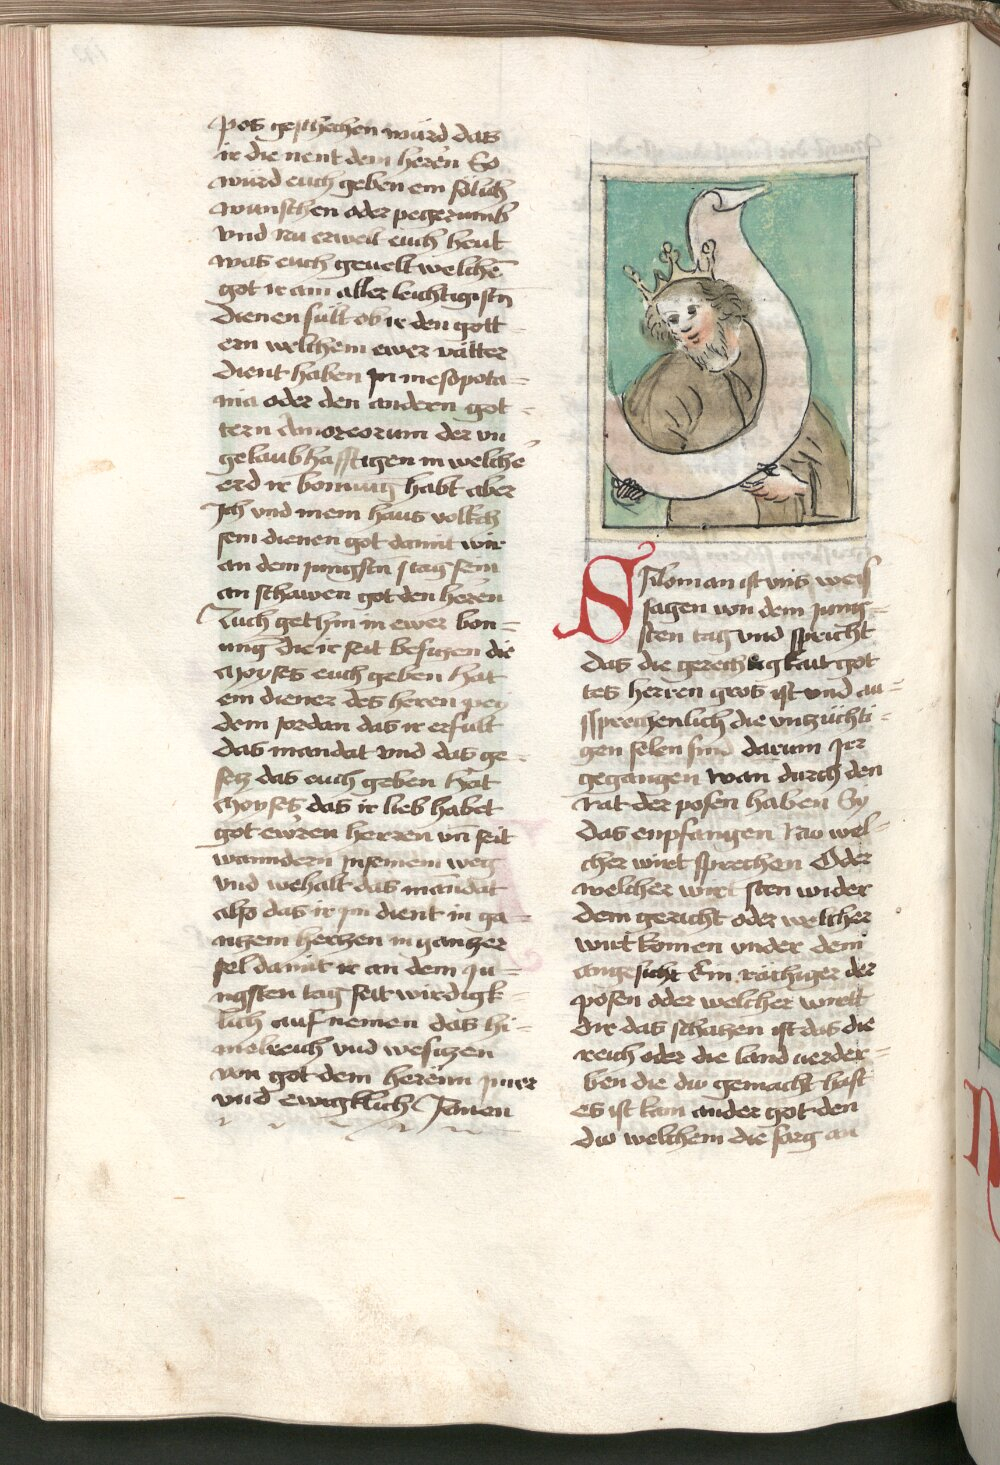 pos geschechen würd das
ir die nent dem heren So
wurd euch geben ein sölich
wunschen oder pegerumb
vnd Nu erwelt euch heut
was euch geuelt welchē
got ir am aller leichtigistn
dienen sült ob ir den gött
ern welchem ewer vätter
dient haben Jn mesopota=
mia oder den andern got=
tern Amoreorum der vn
gelaubhafftigen in welche
erd ir bonung habt aber
Jch vnd mein haus volkch
sein dienen got damit wir
an dem jungstn stag sein
an schawen got den heren
Auch get hin in ewer bon=
ung die ir seit besiczen die
Moyses euch geben hat
ein diener des heren pey
dem Jordan das ir erfult
das mandat vnd das ge=
secz das euch geben hat
Moyses das ir lieb habet
got ewren herren vn̄ seit
wanndern in seinem weg
vnd wehalt das mandat
also das ir im dient in ga=
nczem herczen in gantzer
sel damit ir an dem ju=
ngsten tag seit wirdigk=
lich auf nemen das hi=
melreich vnd wesiczen
von got dem herenn jmer
vnd ewigklich Amen
Saloman ist vns weis
sagen von dem jung=
sten tag vnd spricht
das die gerechtigkait got
tes herren gros ist vnd au=
ssprechenlich die vnzüchti=
gen selen sind darum Jrr
gegangen wan durch den
rat der posen haben Sy
das enpfangen Naw wel=
cher wirt sprechen Oder
welcher wirt sten wider
dem gericht oder welcher
wirt komen vnder dem
angesicht Ein rächiger der
posen oder welcher wirtt
dir das schatzen ist das die
reich oder die land verder=
ben die dw gemacht hast
es ist kain ander got den
dw welchem die sorg an